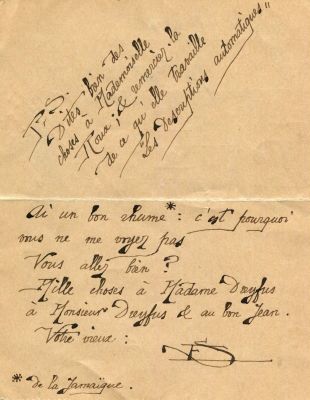 P.S.
Dites bien des
choses à Mademoiselle
Roux; & remercier-la
de ce qu'elle travaille
les Descriptions automatiques"
Ai un bon rhume*: c'est pourquoi
vous ne me voyez pas
Vous allez bien?
Mille choses à Madame Dreyfus
à Monsieur Dreyfus & au bon Jean.
Votre vieux:
ES
* de la Jamaïque.